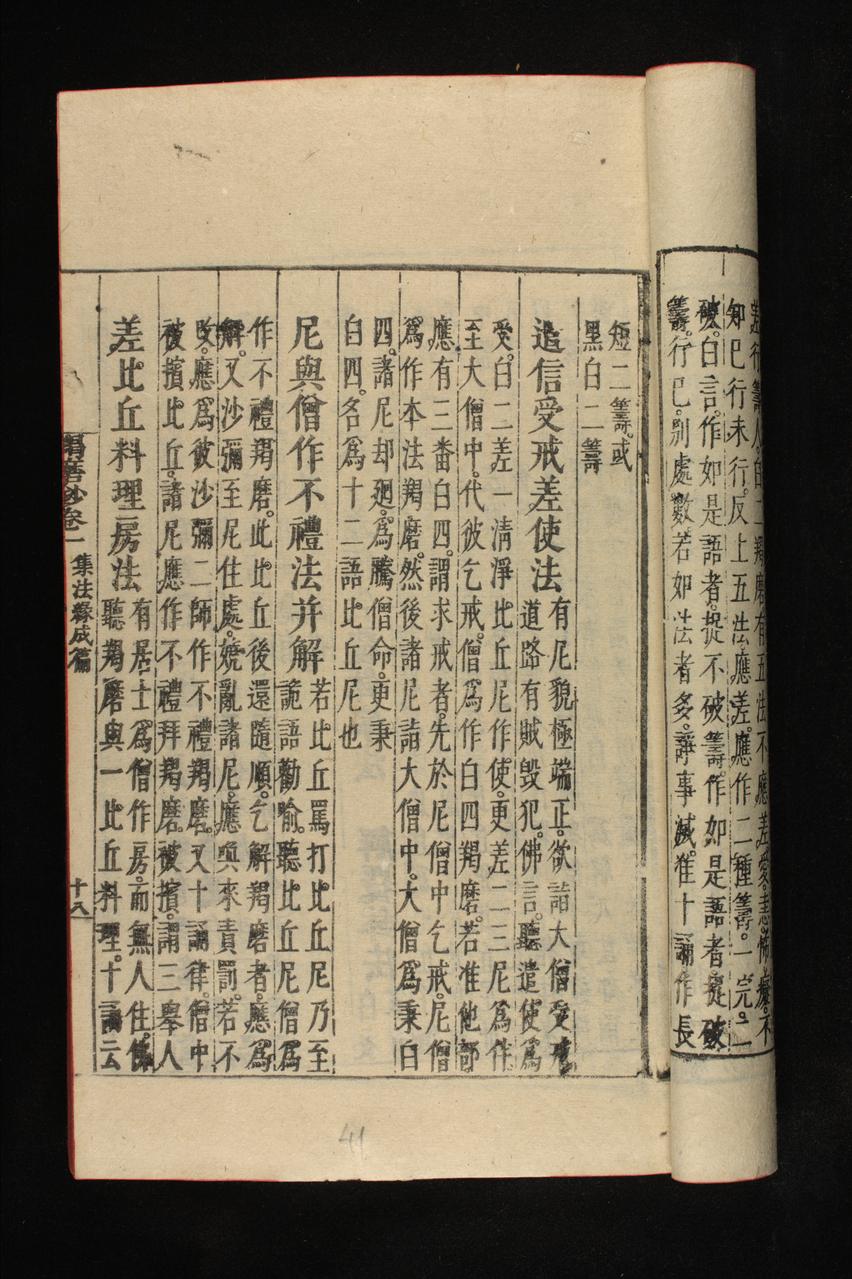 差行籌人白二羯磨有五法不應差愛恚怖癡不
知已行未行反上五法應差應作二種籌一完二
破白言作如是語者捉不破籌作如是語者捉破
籌行已別處數若如法者多諍事滅准十誦作長
短二籌或
黑白二籌
遣信受戒差使法
有尼貌極端正欲詣大僧受戒
道路有賊毀犯佛言聽遣使爲
受白二差一清淨比丘尼作使更差二三尼爲伴
至大僧中代彼乞戒僧爲作白四羯磨若准他部
應有三番白四謂求戒者先於尼僧中乞戒尼僧
爲作本法羯磨然後諸尼詣大僧中大僧爲秉白
四諸尼却廻爲騰僧命更秉
白四名爲十二語比丘尼也
尼與僧作不禮法并解
若比丘罵打比丘尼乃至
詭語勸喻聽比丘尼僧爲
作不禮羯磨此比丘後還隨順乞解羯磨者應爲
解又沙彌至尼住處嬈亂諸尼應喚來責罰若不
改應爲彼沙彌二師作不禮羯磨又十誦律僧中
被擯比丘諸尼應作不禮拜羯磨被擯謂三舉人
差比丘料理房法
有居士爲僧作房而無人住佛
聽羯磨與一比丘料理十誦云
羯磨鈔卷一 集法緣成篇
十八
41